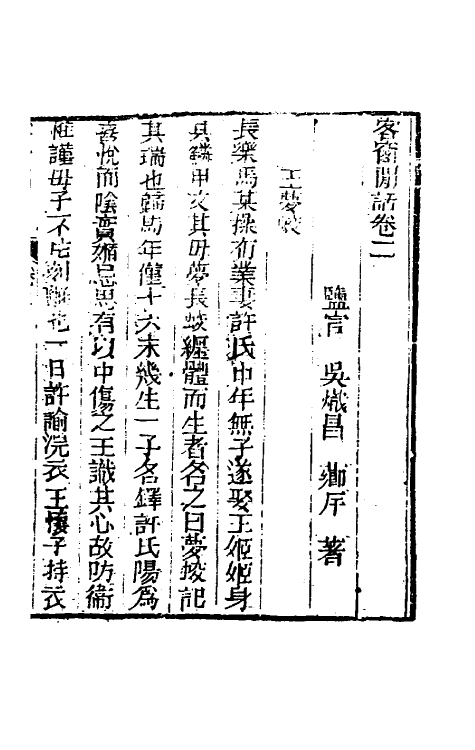 客窗閒話卷二
鹽官 吳熾昌 薌厈 著
王夢蛟
長樂馬某操布業妻許氏中年無子遂娶王姬姬身
具鱗甲文其母夢長蛟纏體而生者名之曰夢蛟記
其瑞也歸馬年僅十六未幾生一子名鐸許氏陽為
喜悅而陰實媢忌思有以中傷之王識其心故防衛
維謹母子不
一日許諭浣衣王懷子持衣